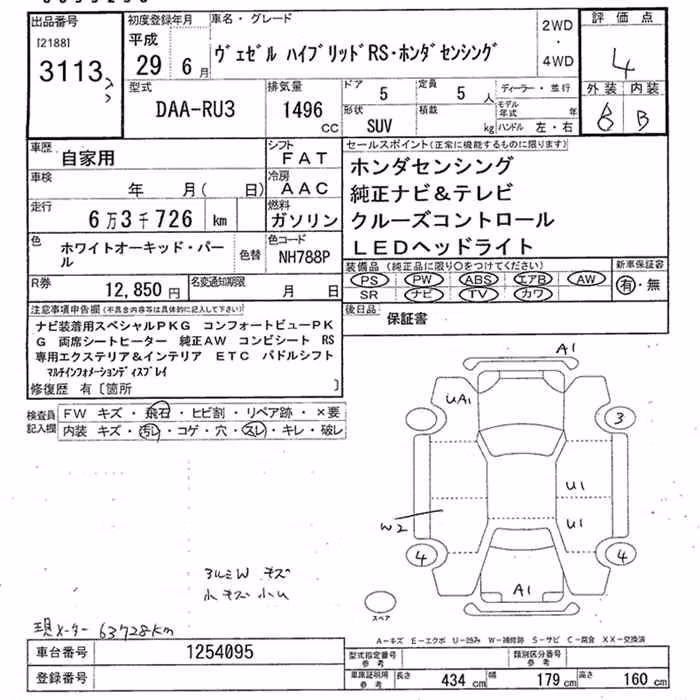 出品番号
[2188]
3113
初度登録年月
平成
29 6月
車名・グレード
ヴェゼル ハイブリッドRS・ホンダセンシング
2WD
・
4WD
評価点
4
外装 内装
6 B
型式
DAA-RU3
排気量
1496
CC
ドア 5
定員 5 人
形状
SUV
積載
kg
ディーラー・並行
モデル年式 年
ハンドル 左・右
車歴
自家用
シフト
FAT
車検
年 月( 日)
冷房
AAC
走行
6万3千726 km
燃料
ガソリン
色
ホワイトオーキッド・パール
色替
色コード
NH788P
R券
12,850円
名変通知期限
月 日
セールスポイント(正常に機能するものに限ります)
ホンダセンシング
純正ナビ&テレビ
クルーズコントロール
LEDヘッドライト
装備品(純正品に限り○をつけてください)
PS PW ABS エアB AW
SR ナビ TV カワ
新車保証書
有・無
後日品
保証書
注意事項申告欄(不具合内容等は具体的に記入して下さい)
ナビ装着用スペシャルPKG コンフォートビューPK
G 両席シートヒーター 純正AW コンビシート RS
専用エクステリア&インテリア ETC パドルシフト
マルチインフォメーションディスプレイ
修復歴 有〔箇所 〕
検査員
記入欄
FW キズ・飛石・ヒビ割・リペア跡・×要
内装 キズ・汚レ・コゲ・穴・スレ・キレ・破レ
A1
UA1
3
U1
U1
W2
4
4
A1
スペア
アルミW キズ
小キズ小U
現メーター 63728km
A-キズ E-エクボ U-凹み W-補修跡 S-サビ C-腐食 XX-交換済
車台番号
1254095
登録番号
型式指定番号
参考
類別区分番号
参考
車庫証明用
参考
長さ 434 cm 幅 179 cm 高さ 160 cm